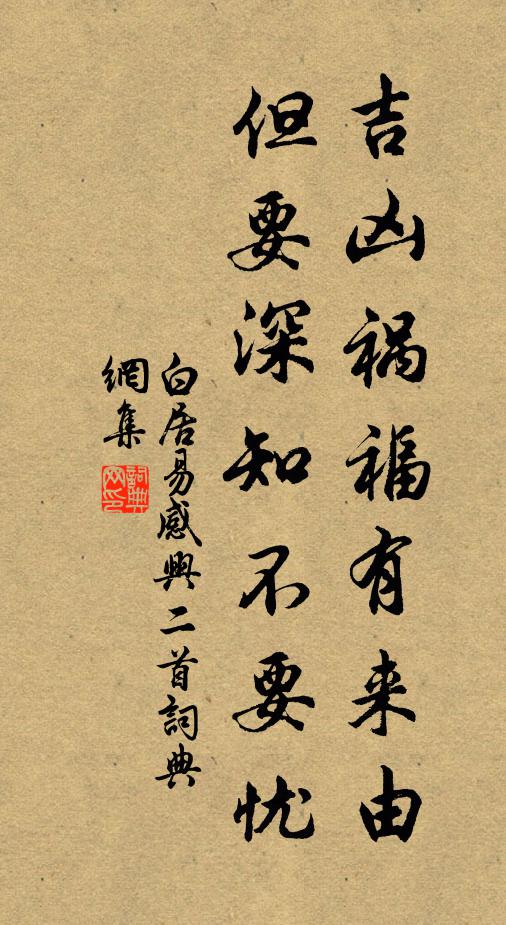 吉凶祸福有来由
但要深知不要忧
白居易感興二首詞典
網集
詞典
网印